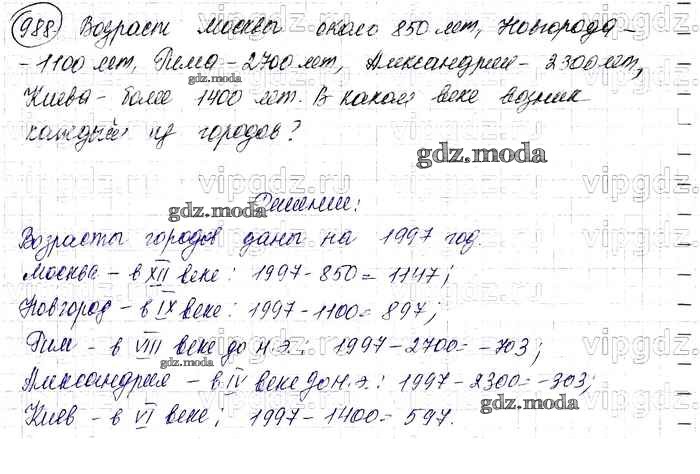 988) Возраст Москвы около 850 лет, Новгорода -
- 1100 лет, Рима - 2700 лет, Александрии - 2300 лет,
Киева - более 1400 лет. В каком веке возник
каждый из городов?
Решение:
Возрасты городов даны на 1997 год.
Москва - в XII веке: 1997-850=1147;
Новгород - в IX веке: 1997-1100=897;
Рим - в VIII веке до н.э.: 1997-2700=-703;
Александрия - в IV веке до н.э.: 1997-2300=-303;
Киев - в VI веке; 1997-1400=597.
gdz.moda
gdz.moda
gdz.moda
gdz.moda
gdz.moda
vipgdz.ru